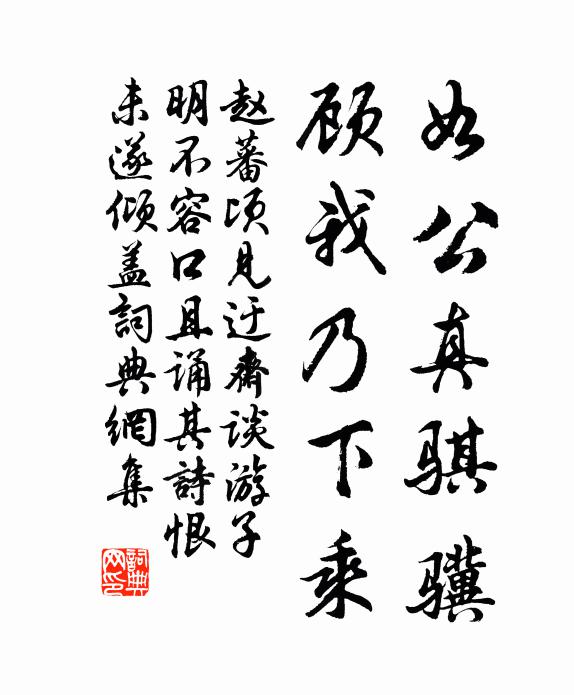 如公真骐骥
顾我乃下乘
赵蕃顷见迂齋谈游子
明不容口且诵其詩恨
未遂倾盖詞典網集
詞典网印